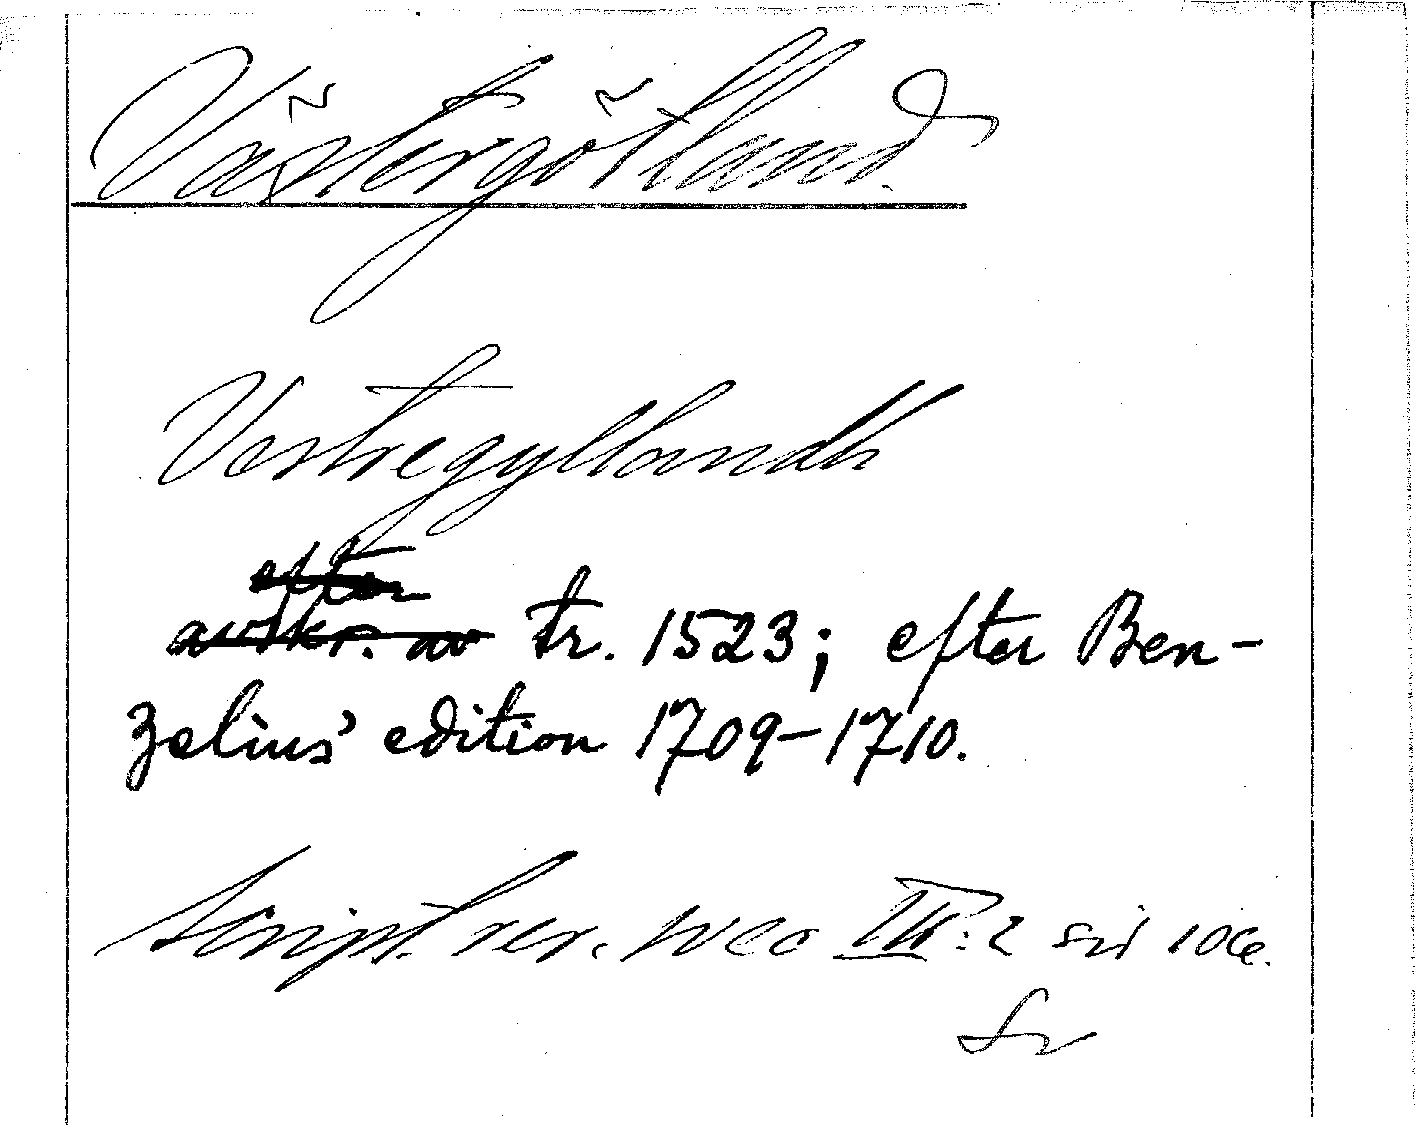 Västergötland.
Vestregyllandh
efter
avskr. av tr. 1523; efter Ben-
zelius' edition 1709-1710.
Script. rer. svec III:2 sid 106.